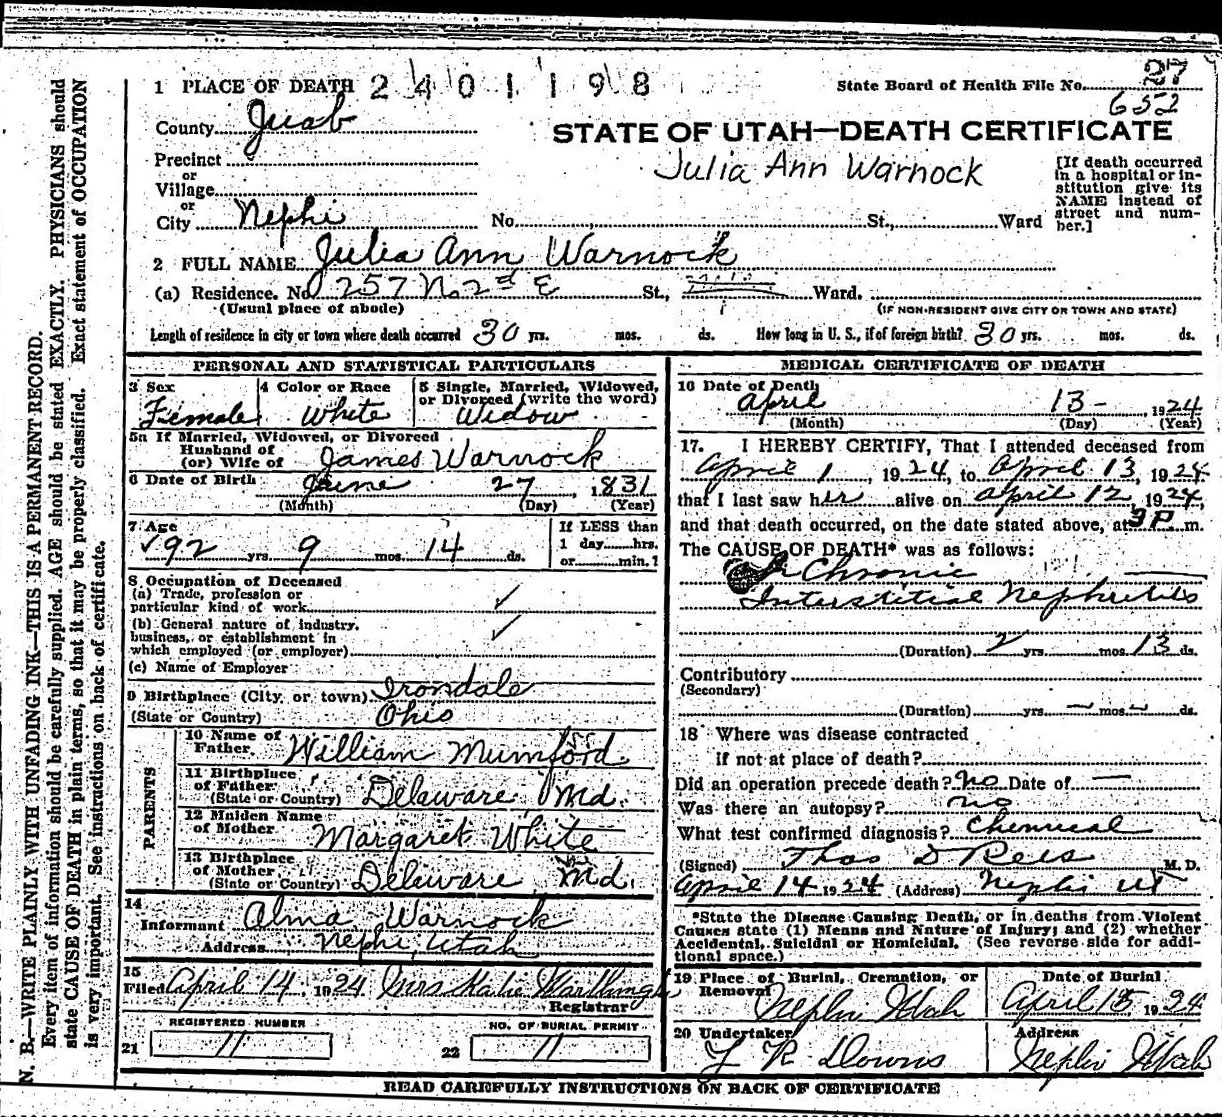 1 PLACE OF DEATH 2401198
State Board of Health File No. 27
652
County Juab
STATE OF UTAH—DEATH CERTIFICATE
Julia Ann Warnock
Precinct
or
Village
or
City Nephi No. St., Ward
[If death occurred
in a hospital or in-
stitution give its
NAME instead of
street and num-
ber.]
2 FULL NAME Julia Ann Warnock
(a) Residence. No 257 No 2nd E St., Ward.
(Usual place of abode) (IF NON-RESIDENT GIVE CITY OR TOWN AND STATE)
Length of residence in city or town where death occurred 30 yrs. mos. ds. How long in U. S., if of foreign birth? 30 yrs. mos. ds.
PERSONAL AND STATISTICAL PARTICULARS
3 Sex
Female
4 Color or Race
White
5 Single, Married, Widowed,
or Divorced (write the word)
Widow
5a If Married, Widowed, or Divorced
Husband of
(or) Wife of James Warnock
6 Date of Birth June 27, 1831
(Month) (Day) (Year)
7 Age
92 yrs. 9 mos. 14 ds.
If LESS than
1 day......hrs.
or............min.?
8 Occupation of Deceased
(a) Trade, profession or
particular kind of work ✓
(b) General nature of industry,
business, or establishment in ✓
which employed (or employer)
(c) Name of Employer
9 Birthplace (City, or town) Irondale
(State or Country) Ohio
PARENTS
10 Name of
Father William Mumford
11 Birthplace
of Father
(State or Country) Delaware Md.
12 Maiden Name
of Mother Margaret White
13 Birthplace
of Mother
(State or Country) Delaware, Md.
14
Informant Alma Warnock
Address Nephi, Utah
15
Filed April 14, 1924 Mrs Katie
Registrar
REGISTERED NUMBER NO. OF BURIAL PERMIT
21 11 22 11
MEDICAL CERTIFICATE OF DEATH
16 Date of Death
April 13 - , 1924
(Month) (Day) (Year)
17. I HEREBY CERTIFY, That I attended deceased from
April 1, 1924, to April 13, 1924
that I last saw her alive on April 12, 1924,
and that death occurred, on the date stated above, at 3 P. m.
The CAUSE OF DEATH* was as follows:
Chronic
Interstitial Nephritis
(Duration) 2 yrs. mos. 13 ds.
Contributory
(Secondary)
(Duration) yrs. — mos. — ds.
18 Where was disease contracted
if not at place of death?
Did an operation precede death? No Date of —
Was there an autopsy? no
What test confirmed diagnosis? Chemical
(Signed) Thos D Rees M. D.
April 14 1924 (Address) Nephi Ut
*State the Disease Causing Death, or in deaths from Violent
Causes state (1) Means and Nature of Injury; and (2) whether
Accidental, Suicidal or Homicidal. (See reverse side for addi-
tional space.)
19 Place of Burial, Cremation, or
Removal Nephi Utah
Date of Burial
April 15 1924
20 Undertaker
L R Downs
Address
Nephi Utah
READ CAREFULLY INSTRUCTIONS ON BACK OF CERTIFICATE
N. B.—WRITE PLAINLY WITH UNFADING INK—THIS IS A PERMANENT RECORD.
Every item of information should be carefully supplied. AGE should be stated EXACTLY. PHYSICIANS should
state CAUSE OF DEATH in plain terms, so that it may be properly classified. Exact statement of OCCUPATION
is very important. See instructions on back of certificate.